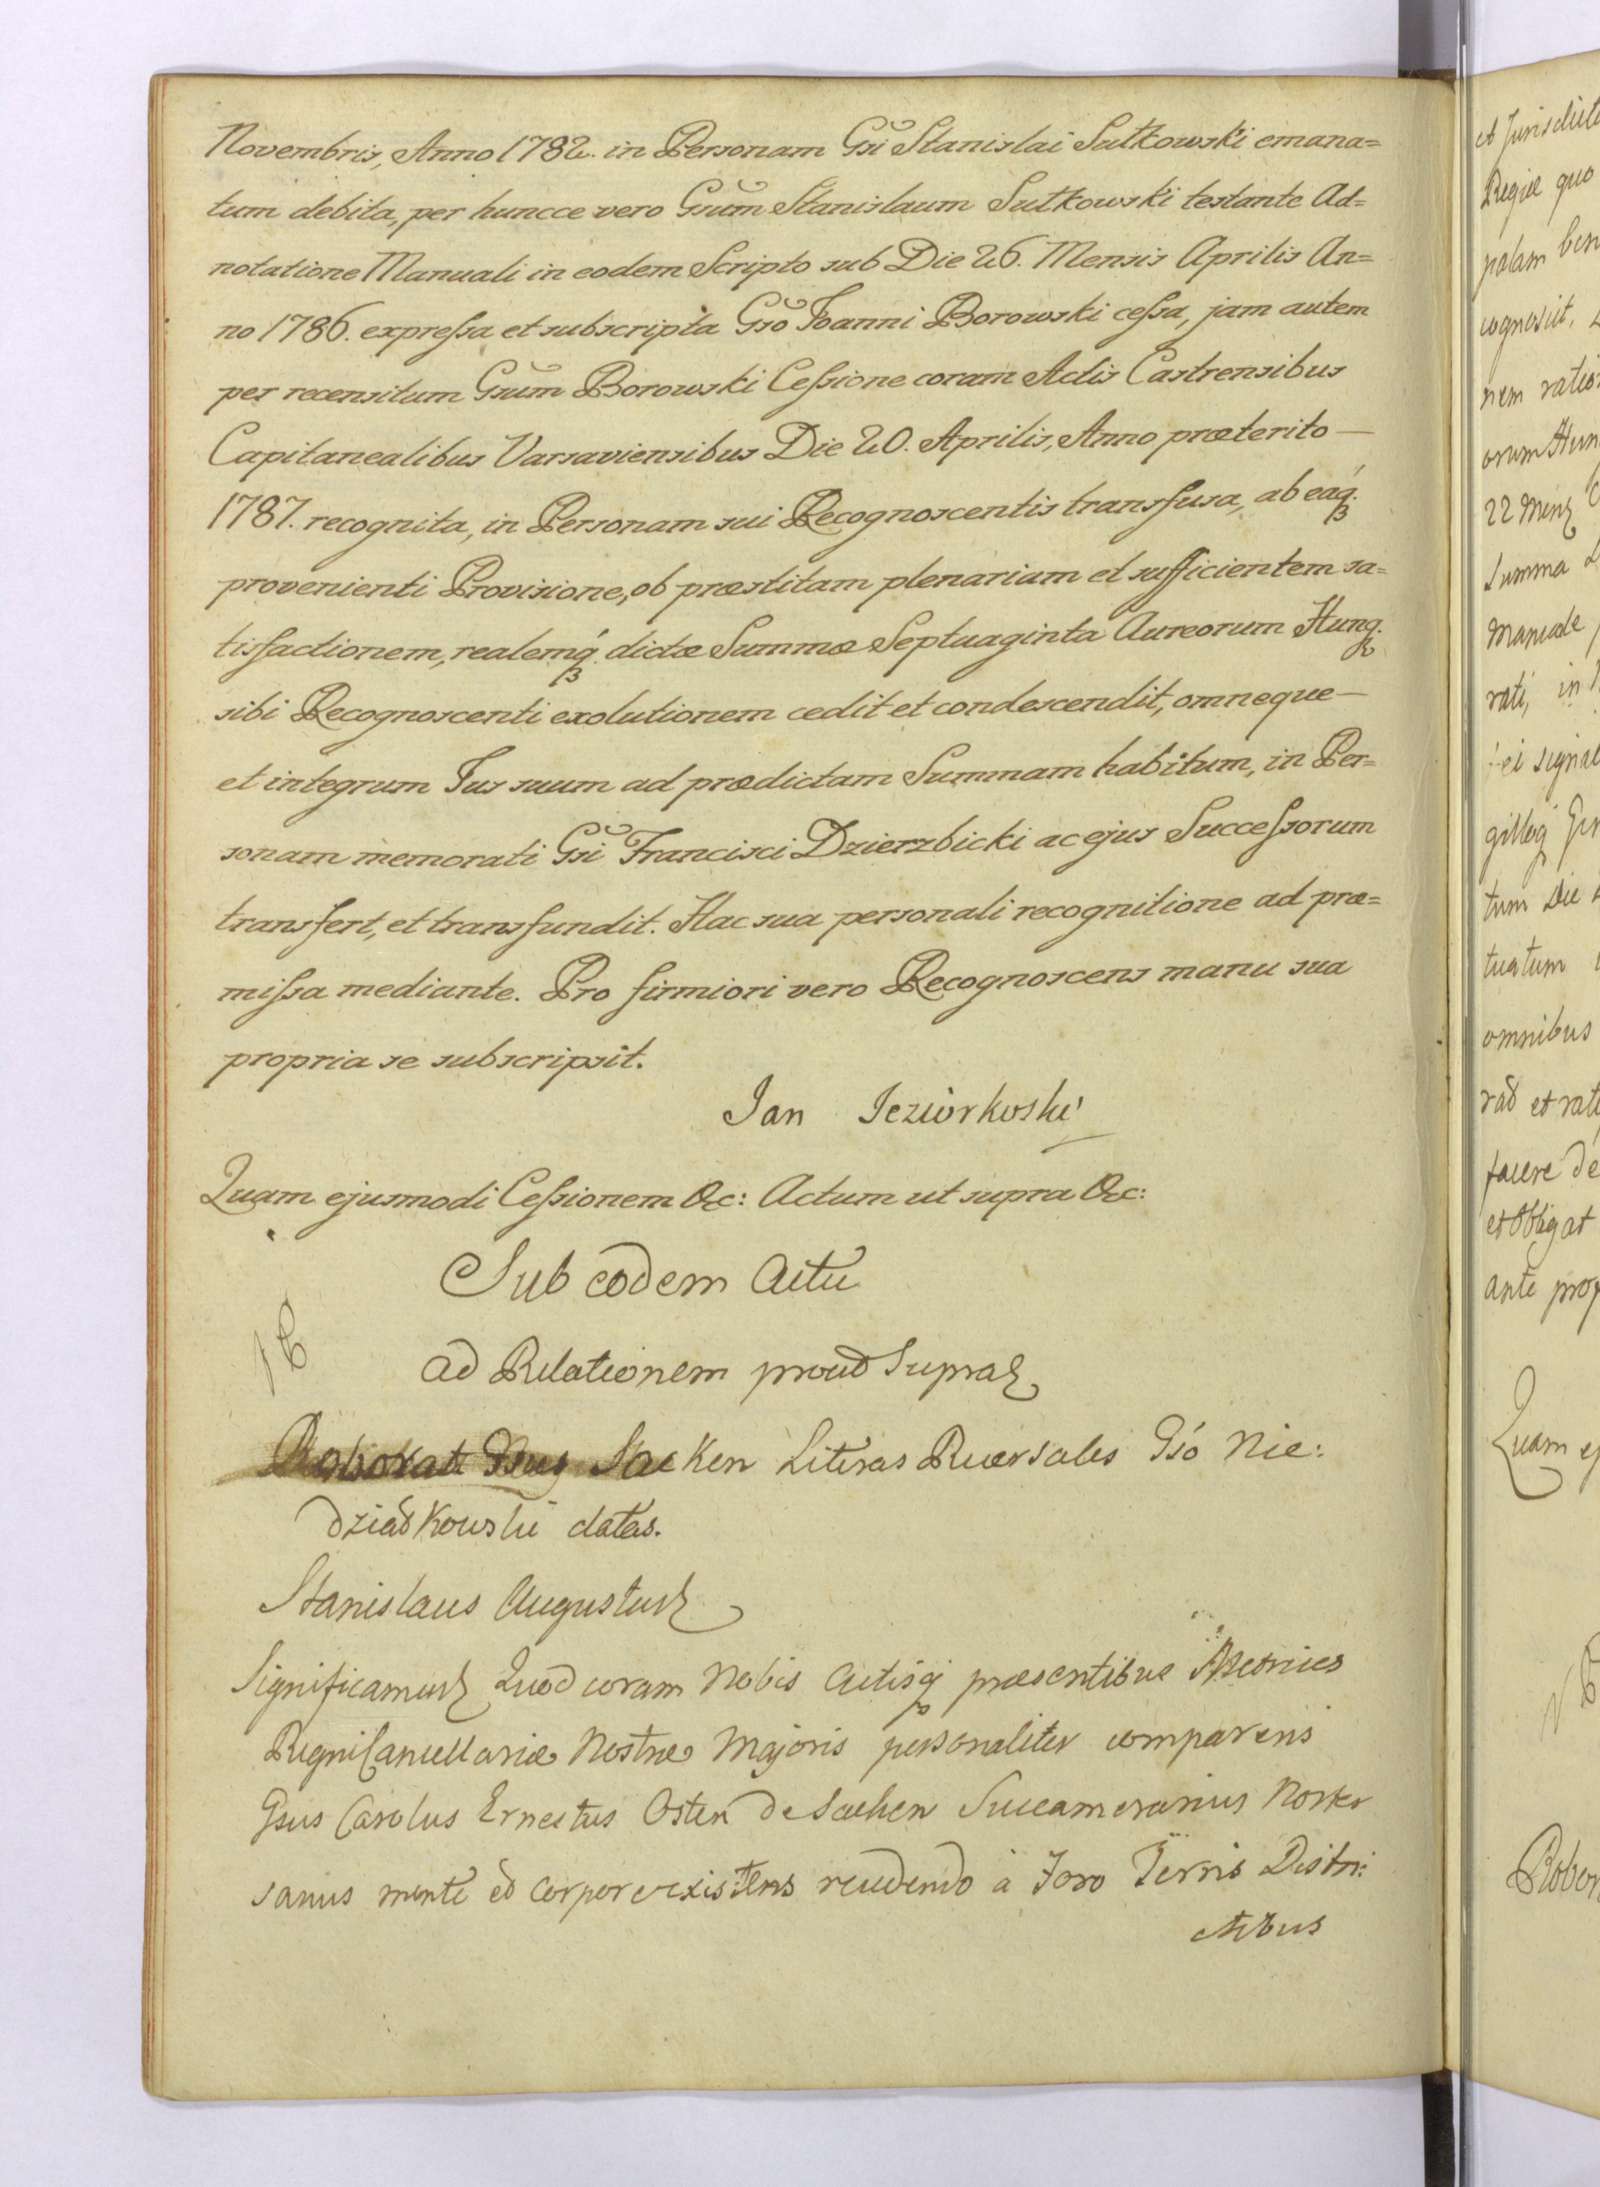 Novembris, Anno 1782. in Personam Gsi Stanislai Sułkowski emana=
tum debita, per huncce vero Gsum Stanislaum Sułkowski testante Ad=
notatione Manuali in eodem Scripto sub Die 26. Mensis Aprilis An=
no 1786. expressa et subscripta Gso Joanni Borowski cessa, jam autem
per recensitum Gsum Borowski Cessione coram Actis Castrensibus
Capitanealibus Varsaviensibus Die 20. Aprilis, Anno præterito —
1787. recognita, in Personam sui Recognoscentis transfusa, ab eáq.
provenienti Provisione, ob præstitam plenariam et sufficientem sa=
tisfactionem, realemq́. dictæ Summæ Septuaginta Aureorum Hung.
sibi Recognoscenti exolutionem cedit et condescendit, omneque —
et integrum Jus suum ad prædictam Summam habitum, in Per=
sonam memorati Gsi Francisci Dzierzbicki ac ejus Successorum
transfert, et transfundit. Hac sua personali recognitione ad præ=
missa mediante. Pro firmiori vero Recognoscens manu sua
propria se subscripsit.
Jan Jeziorkoski
Quam ejusmodi Cessionem &c: Actum ut supra &c:
Sub eodem Actu
ad Relationem prout Supra
Roborat Gsus Sacken Literas Reversales Gsó Nie:
dziadkowski datas.
Stanislaus Augustus
Significamus Quod coram Nobis Actisq præsentibus Metrices
Regni Cancellariæ Nostræ Majoris personaliter comparens
Gsus Carolus Ernestus Osten de Sacken Succamerarius Noster
sanus mente et corpore existens recedendo à Foro Terris Distri:
ctibus
et Jurisdicti
Regiæ quo
palam
nem
orum Hun
22
Summa
rati, in
ei
tum Die
tuatum
omnibus
facere de
et obligat
ante prop
Quam ej
Robor